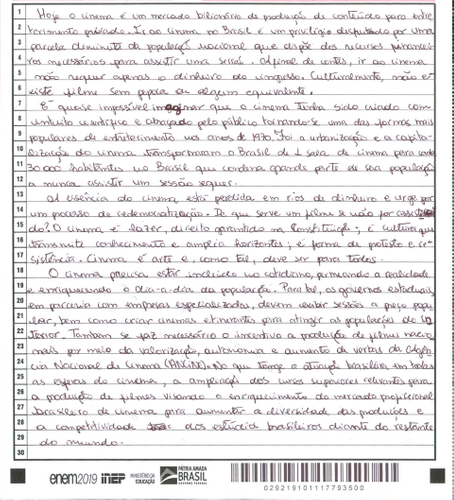 Hoje o cinema é um mercado bilionário de produção de conteúdo para entre
tenimento privado. Ir ao cinema no Brasil é um privilégio desfrutado por uma
parcela diminuta da população nacional que dispõe dos recursos financei
ros necessários para assistir uma sessão. Afinal de contas, ir ao cinema
não requer apenas o dinheiro do ingresso. Culturalmente, não e
xiste filme sem pipoca ou algum equivalente.
É quase impossível imaginar que o cinema tenha sido criado com
intuito científico e abraçado pelo público tornando-se uma das formas mais
populares de entretenimento nos anos de 1970. Foi a urbanização e a capita
lização do cinema transformaram o Brasil de 1 sala de cinema para cada
30.000 habitantes no Brasil que condena grande parte de sua população
a nunca assistir um sessão sequer.
A essência do cinema está perdida em rios de dinheiro e urge por
um processo de redemocratização. De que serve um filme se não for assisti
do? O cinema é lazer, direito garantido na Constituição; é cultura que
transmite conhecimento e amplia horizontes; é forma de protesto e re
sistência. Cinema é arte e, como tal, deve ser para todos.
O cinema precisa estar incluído no cotidiano, permeando a realidade
e enriquecendo o dia-a-dia da população. Para tal, os governos estaduais,
em parceria com empresas especializadas, devem exibir sessões a preço popu
lar, bem como criar cinemas itinerantes para atingir as populações do in
terior. Também se faz necessário o incentivo a produção de filmes nacio
nais por meio da valorização, autonomia e aumento de verbas da Agên
cia Nacional de Cinema (ANCINE). No que tange a atuação brasileira em todas
as esferas do cinema, a ampliação dos cursos superiores relevantes para
a produção de filmes visando o enriquecimento do mercado profissional
brasileiro de cinema para aumentar a diversidade das produções e
a competitividade dos estúdios brasileiros diante do restante
do mundo.
enem2019 inep MINISTÉRIO DA EDUCAÇÃO PÁTRIA AMADA BRASIL GOVERNO FEDERAL
029219101117793500